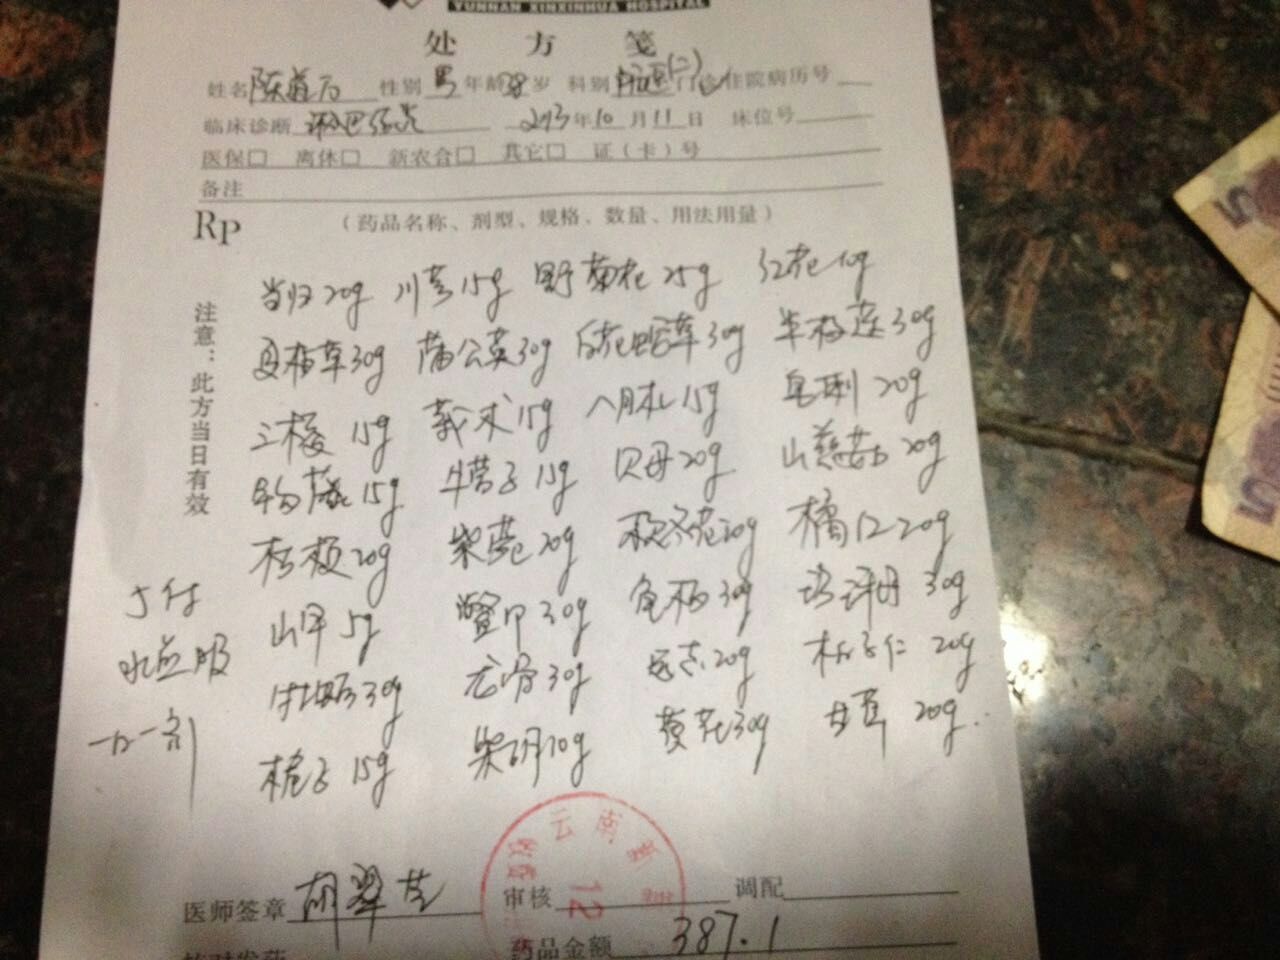 YUNNAN XINXINHUA HOSPITAL
处方笺
姓名 陈 性别 男 年龄 38 岁 科别 门诊/住院病历号
临床诊断 淋巴 2013 年 10 月 11 日 床位号
医保□ 离休□ 新农合□ 其它□ 证(卡)号
备注
RP (药品名称、剂型、规格、数量、用法用量)
注意:此方当日有效
当归20g 川芎15g 野菊花25g 红花10g
夏枯草30g 蒲公英30g 白花蛇舌草30g 半枝莲30g
三棱15g 莪术15g 八月札15g 20g
15g 牛蒡子15g 贝母20g 山慈菇20g
桔梗20g 紫菀20g 款冬花20g 橘红20g
山甲5g 鳖甲30g 龟板30g 珍珠母30g
牡蛎30g 龙骨30g 远志20g 柏子仁20g
栀子15g 柴胡10g 黄芪30g 甘草20g
5付
水煎服
一日一剂
医师签章 胡翠芬 审核 调配
药品金额 387.1
核对发药
云南新
收费
12
5
5